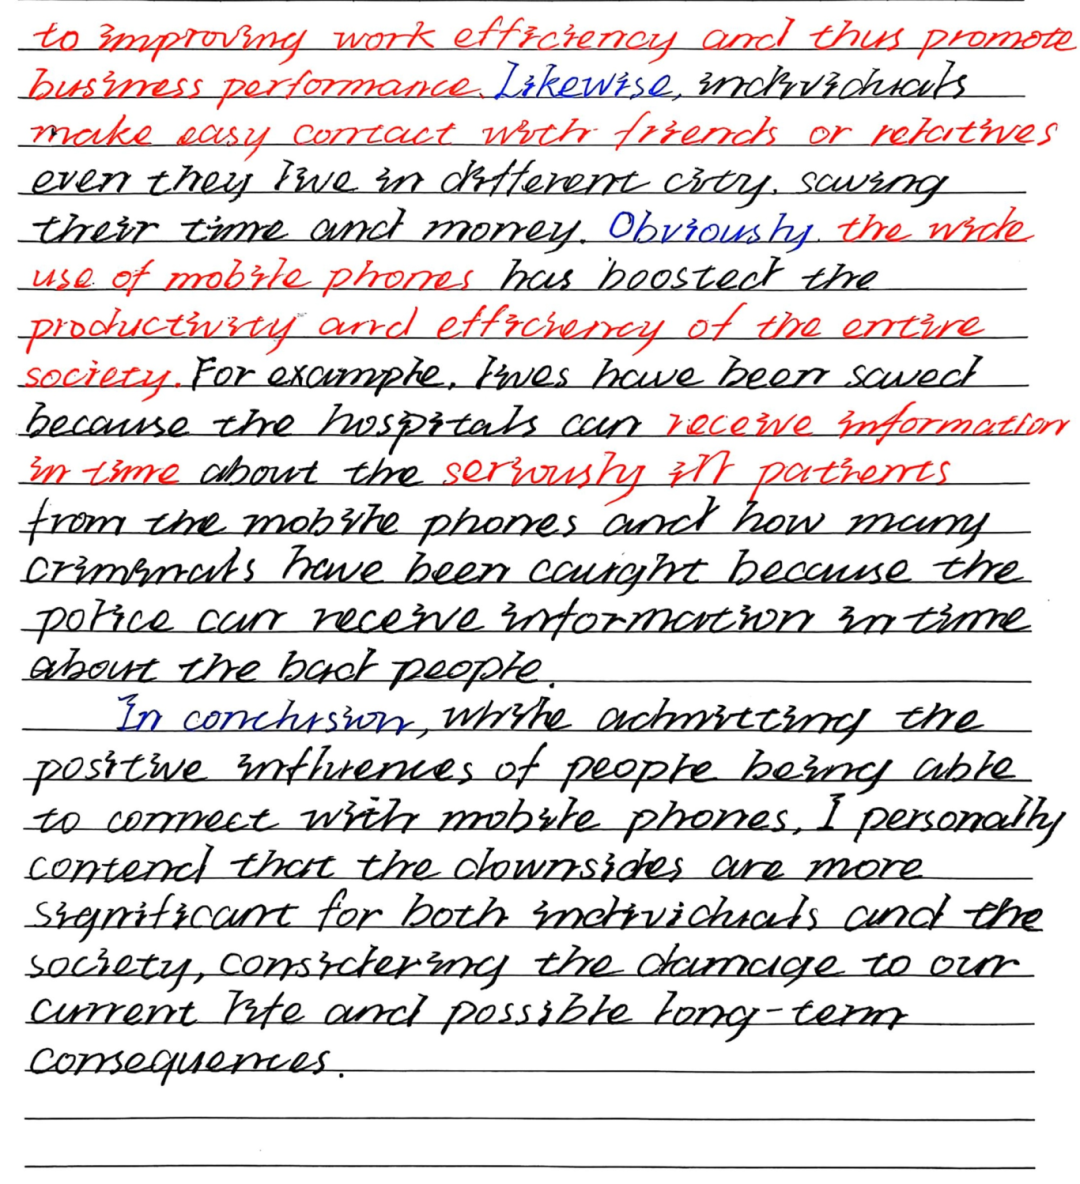 to improving work efficiency and thus promote
business performance. Likewise, individuals
make easy contact with friends or relatives
even they live in different city. saving
their time and money. Obviously. the wide
use of mobile phones has boosted the
productivity and efficiency of the entire
society. For example, lives have been saved
because the hospitals can receive information
in time about the seriously ill patients
from the mobile phones and how many
criminals have been caught because the
police can receive information in time
about the bad people.
In conclusion, while admitting the
positive influences of people being able
to connect with mobile phones, I personally
contend that the downsides are more
significant for both individuals and the
society, considering the damage to our
current life and possible long-term
consequences.